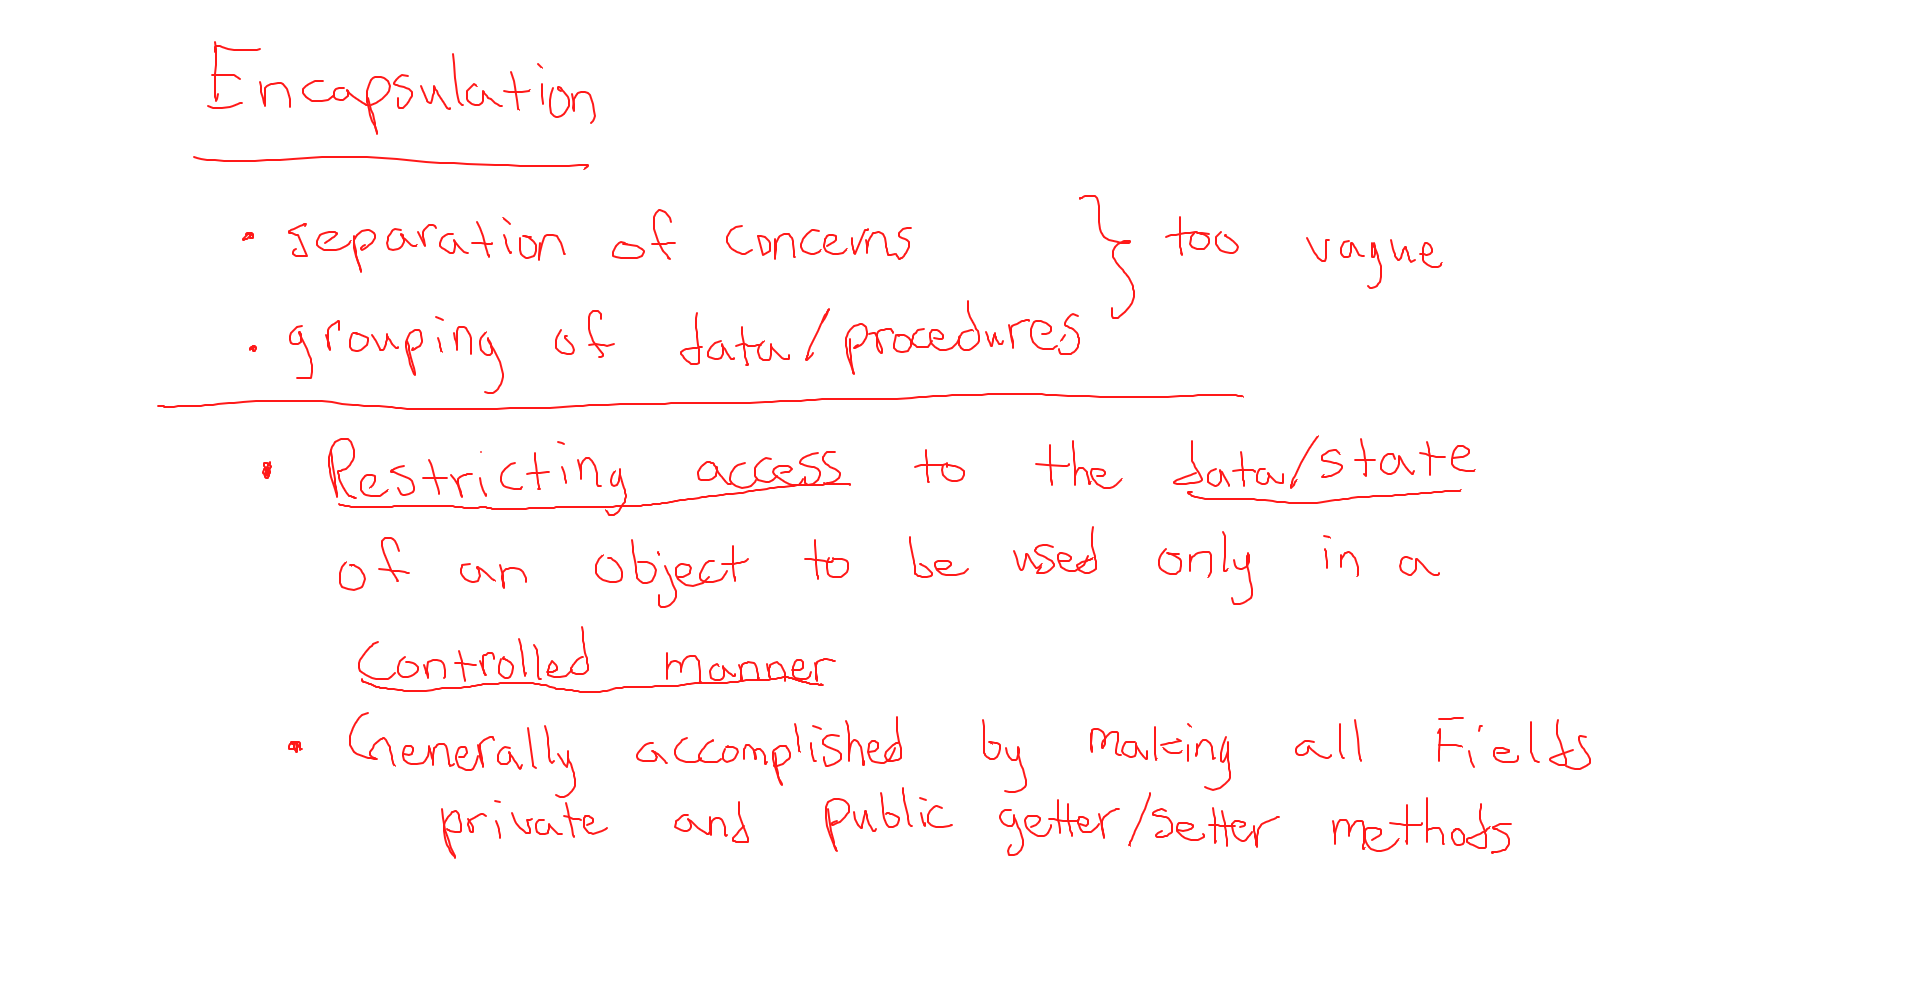 Encapsulation
• separation of concerns } too vague
• grouping of data/procedures
• Restricting access to the data/state
of an object to be used only in a
Controlled manner
• Generally accomplished by making all Fields
private and public getter/setter methods